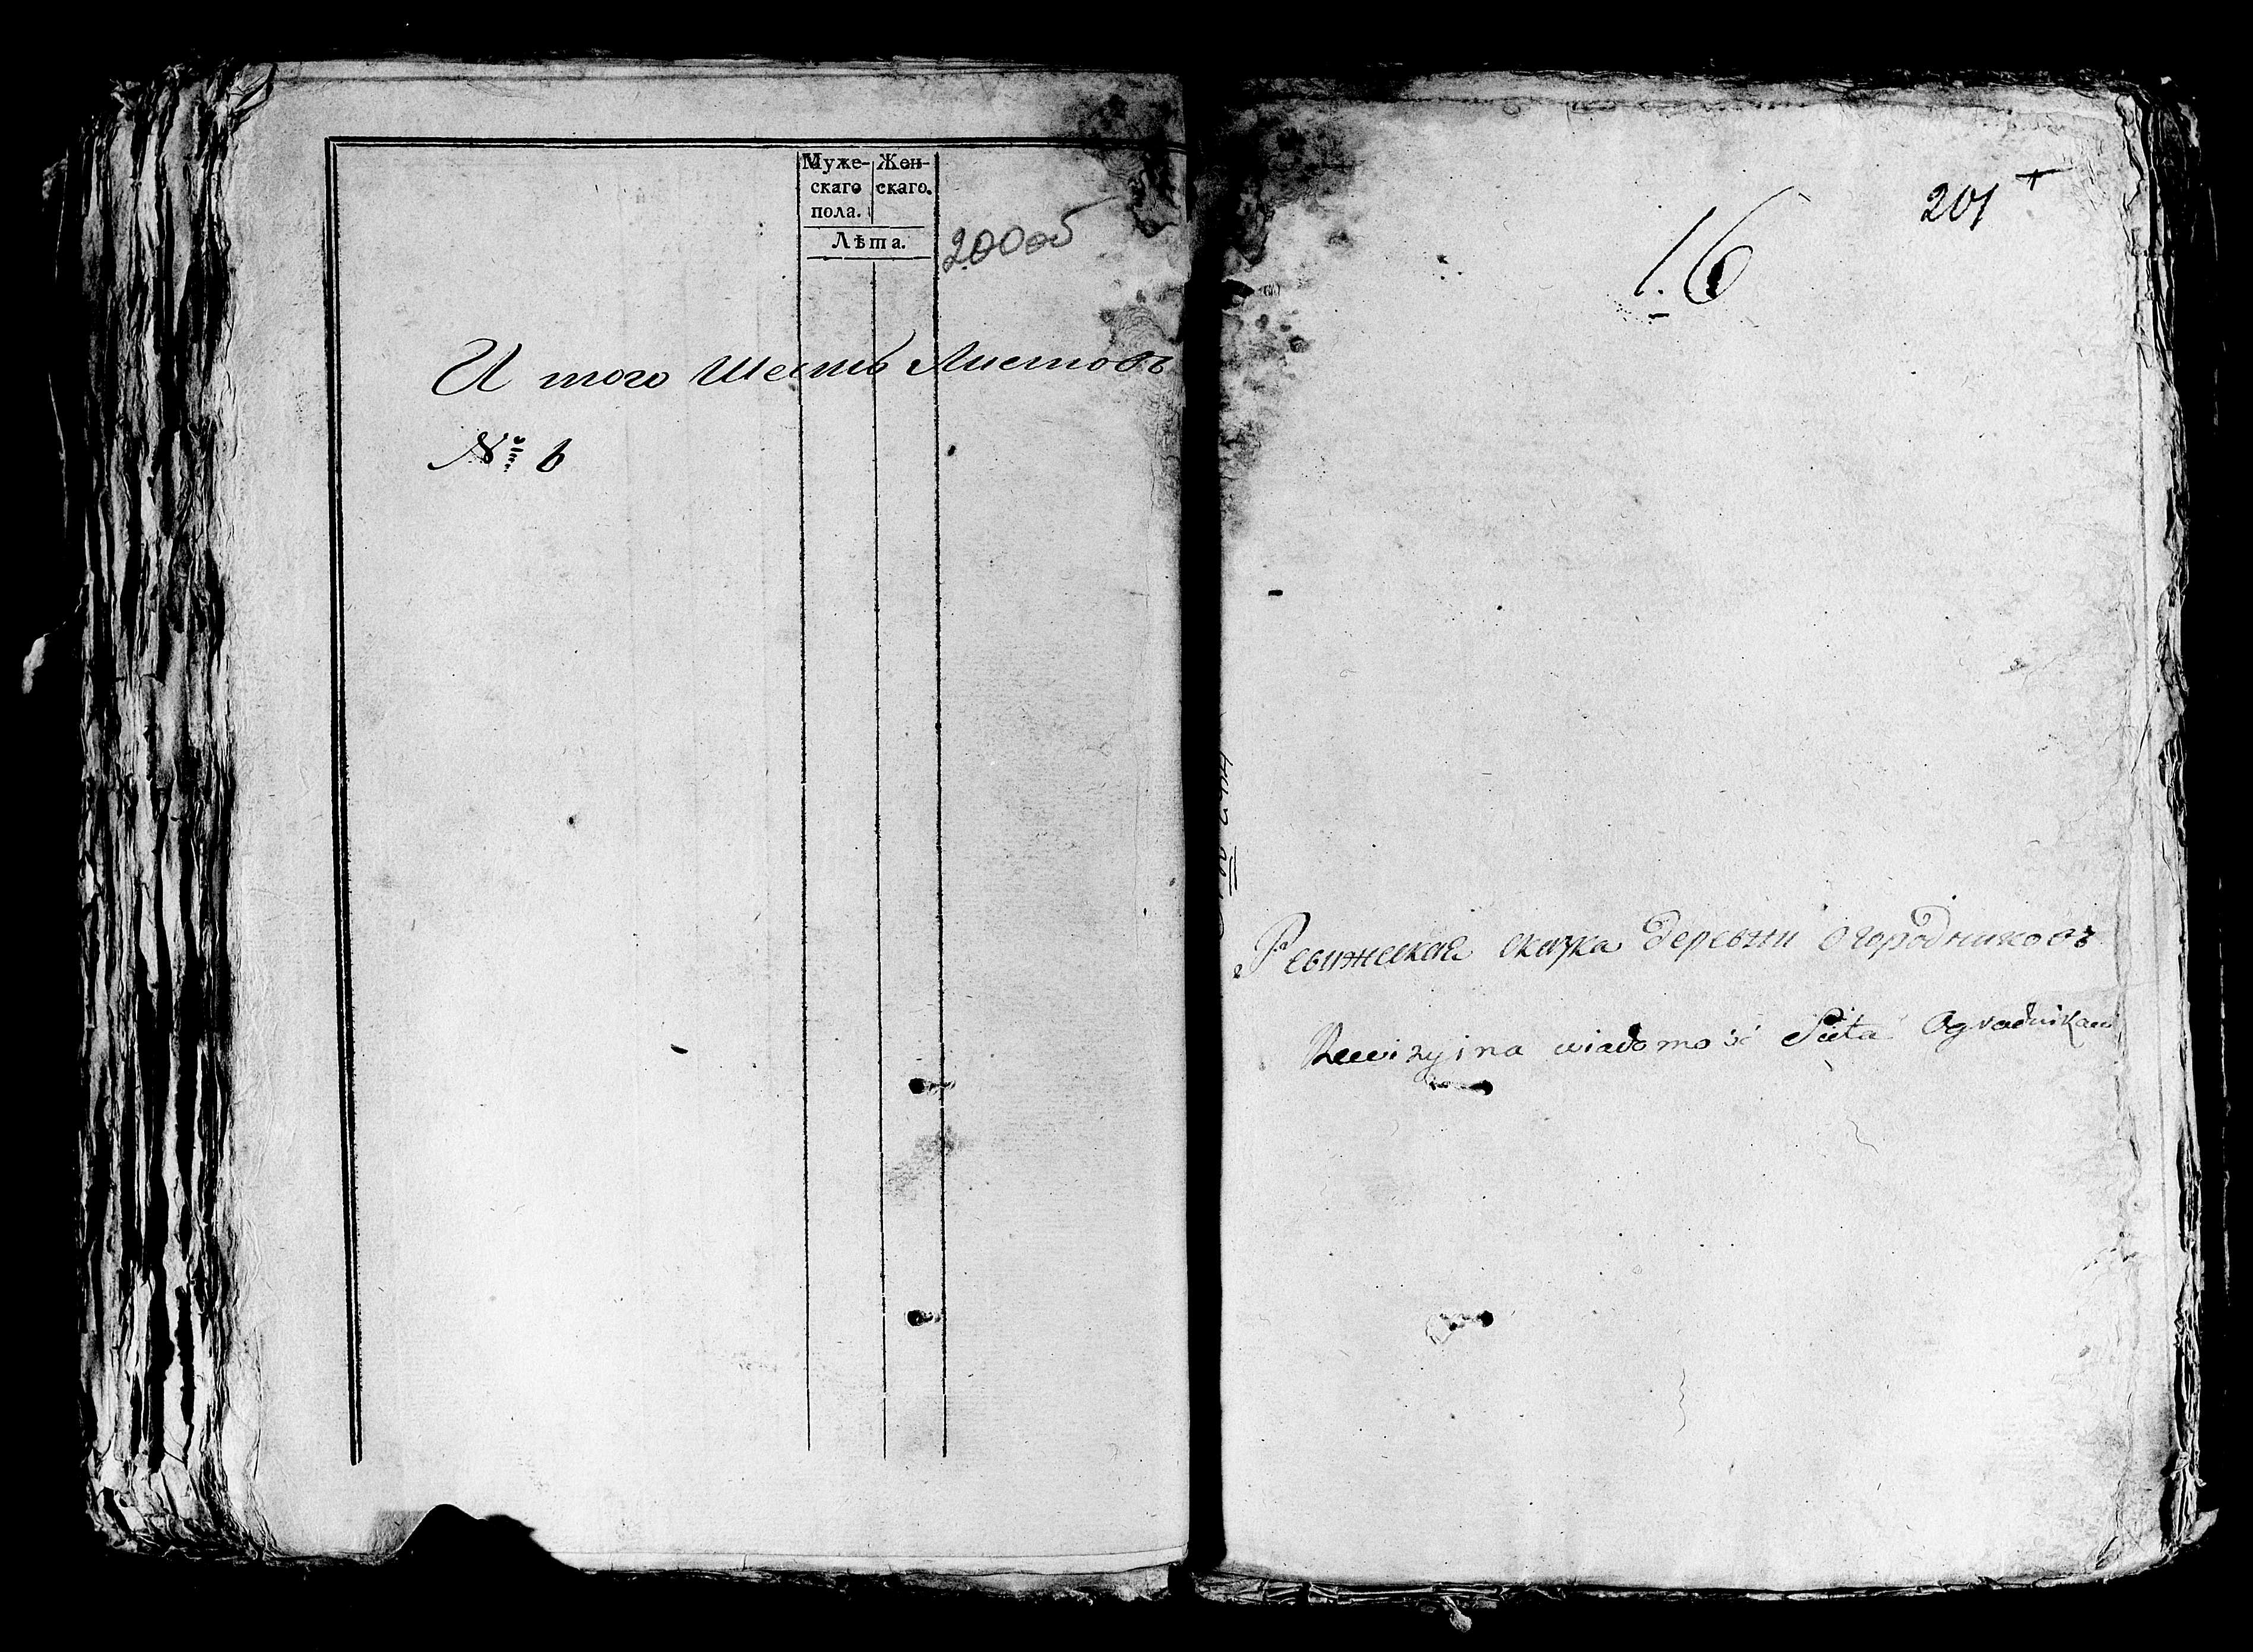 Муже- Жен-
скаго скаго.
пола.
Лѣта.
200об
И того Шесть Листовъ
№ 6
201
16
Ревижская скаска деревни Огородниковъ
Rewizyina wiadomość Sieła Ogrodnikow